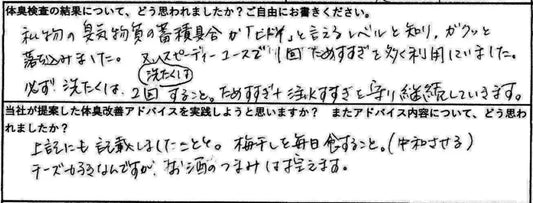 体臭検査の結果について、どう思われましたか？ご自由にお書きください。
私物の臭気物質の蓄積具合が「ヒドイ」と言えるレベルと知り、ガクッと
落ち込みました。スピーディーコースで1回ためすすぎを多く利用していました。
洗たくは
必ず 2回すること。ためすすぎ+注水すすぎを守り継続していきます。
当社が提案した体臭改善アドバイスを実践しようと思いますか？ またアドバイス内容について、どう思わ
れましたか？
上記にも記載しましたことと。梅干しを毎日食すること。(中和させる)
チーズ好きなんですが、お酒のつまみは控えます。